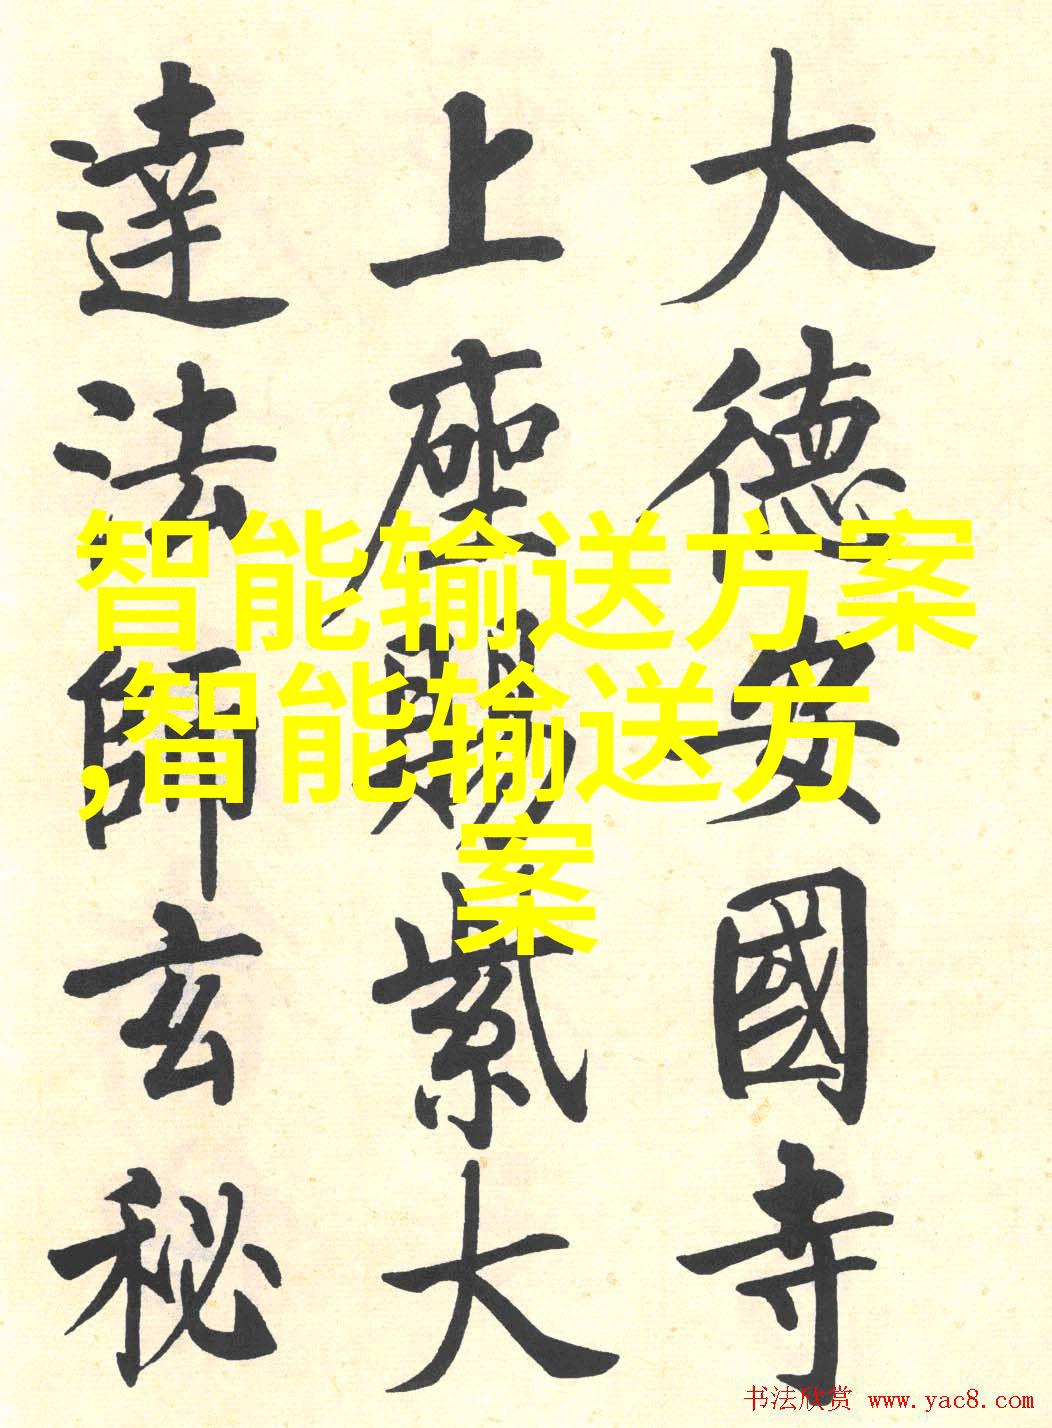 大德安國寺
上座賜紫大
達法師玄秘
智能输送方案
,智能输送方
案
书法欣赏 www.yac8.com